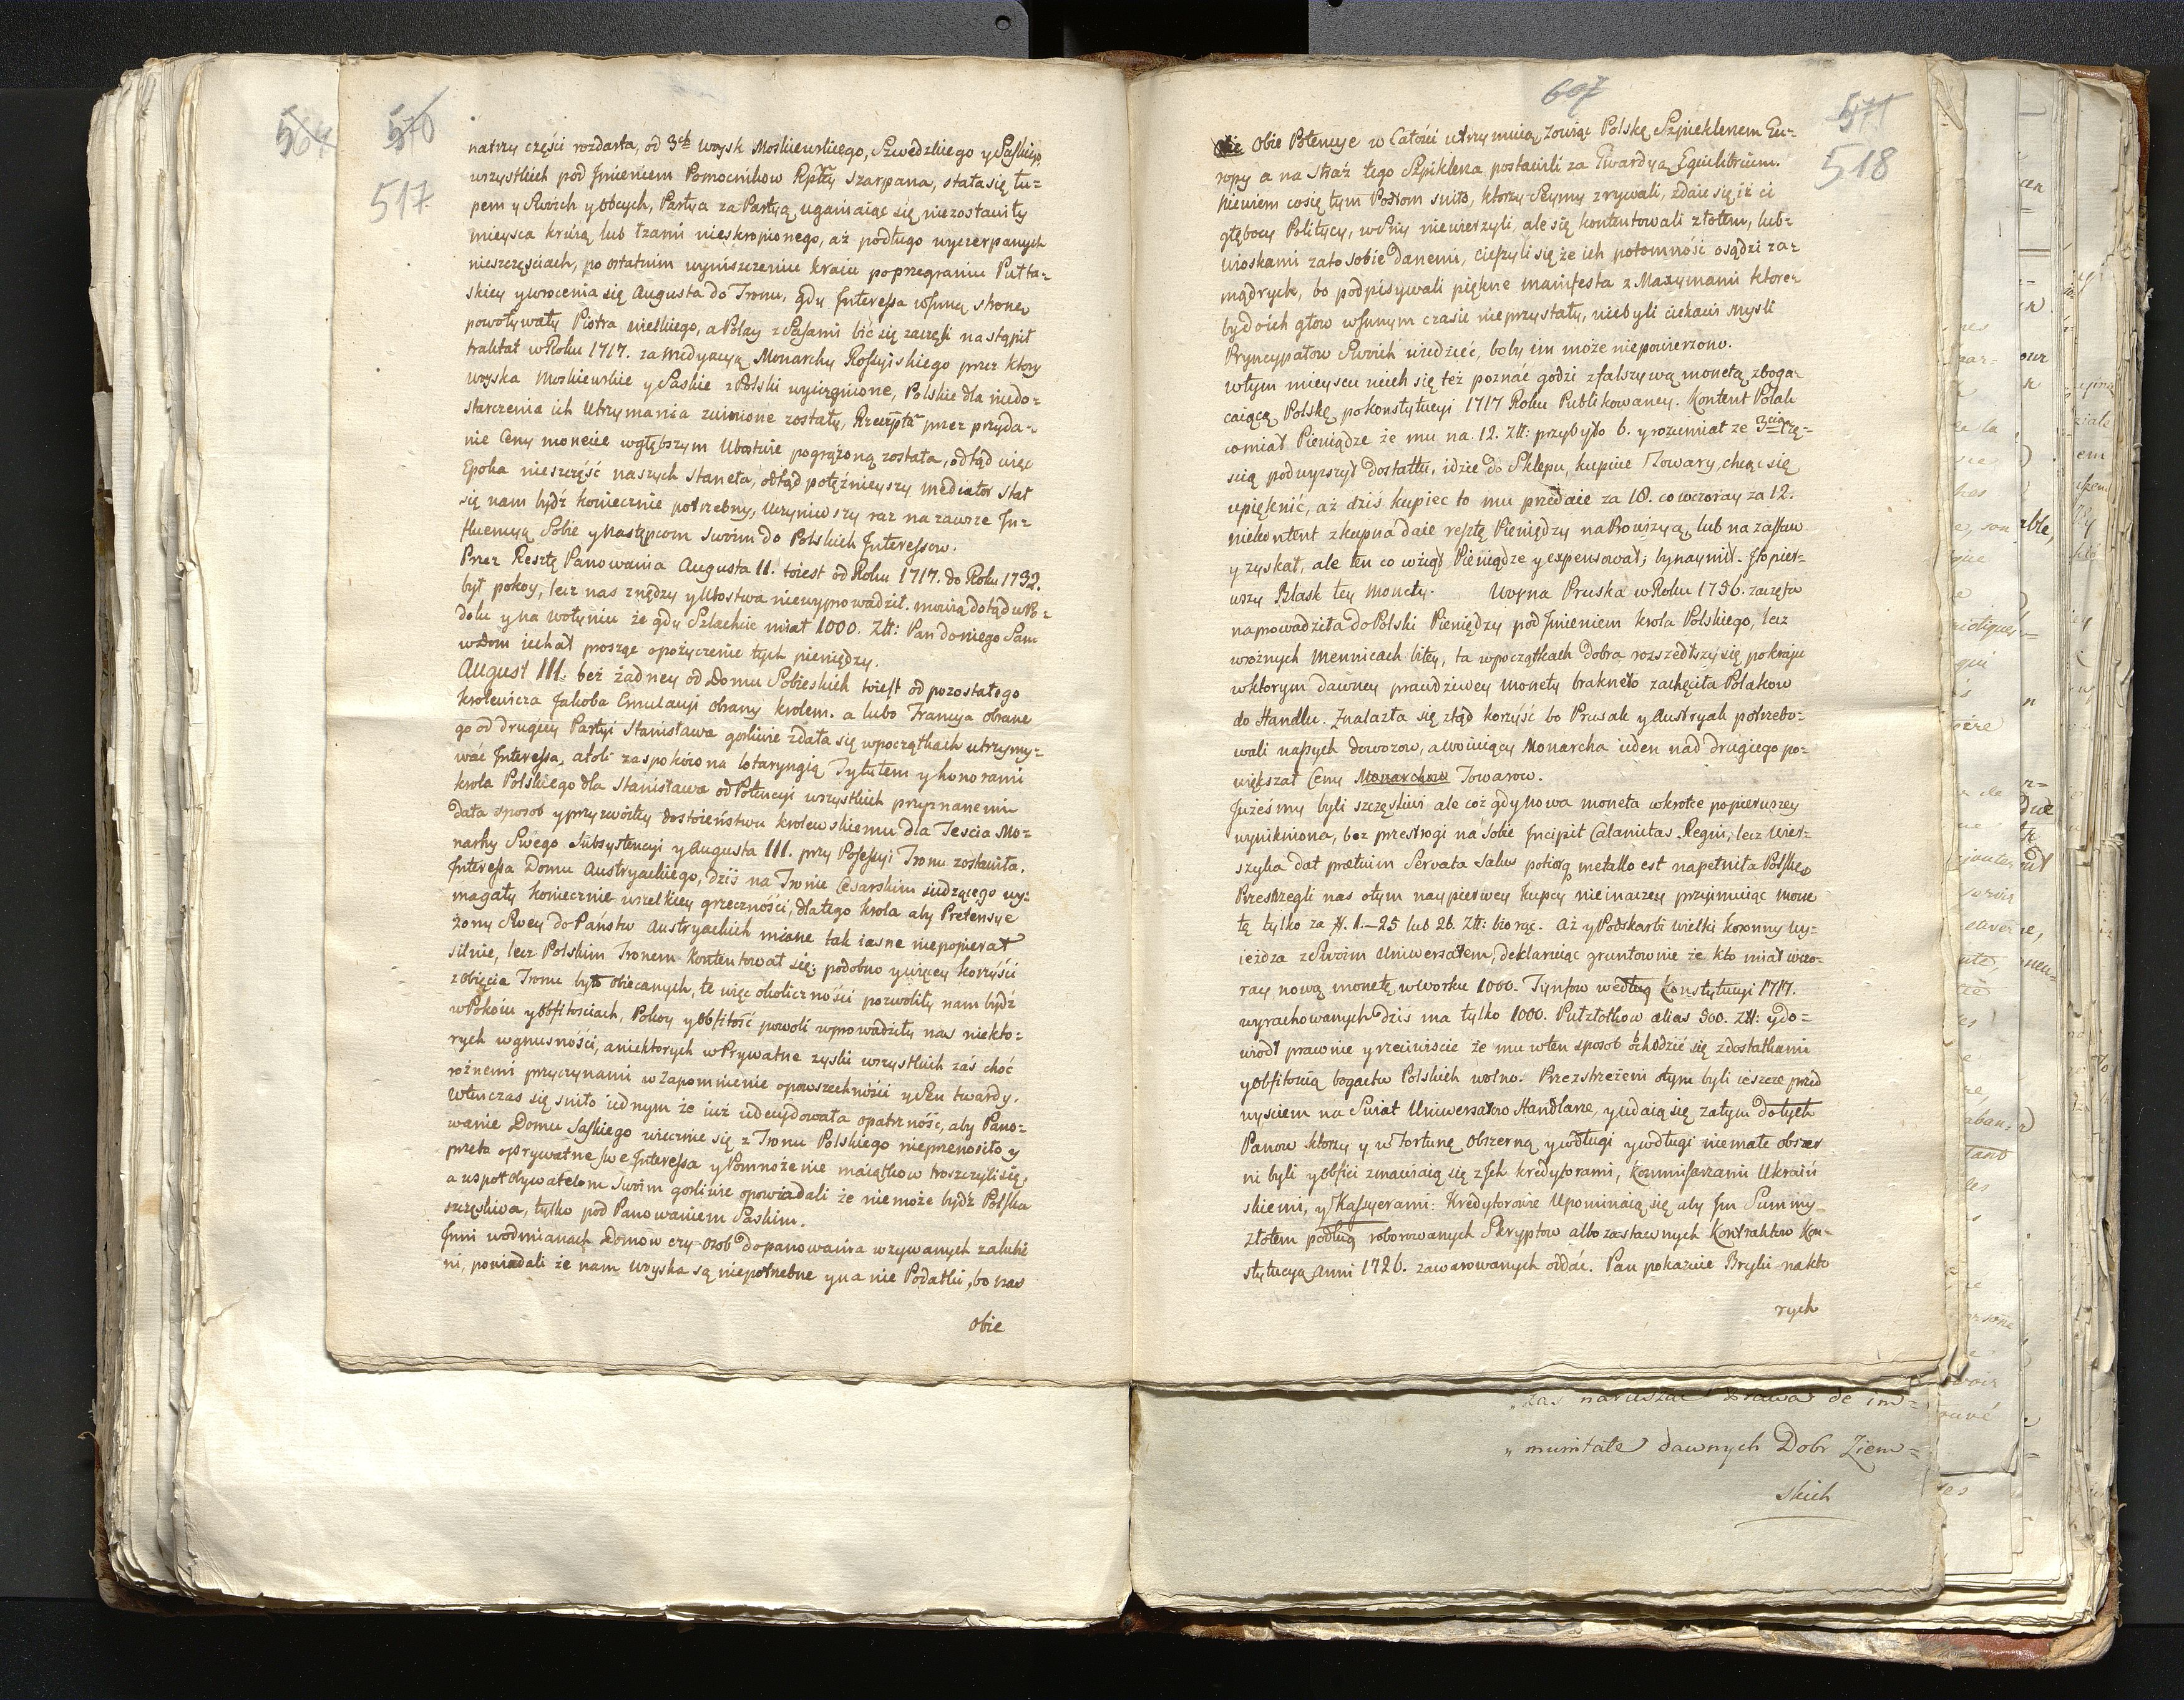 564
570
517
na trzy części rozdarta, od 3ch woysk Moskiewskiego, Szwedzkiego y Saskiego
wszystkich pod Jmieniem Pomocnikow Rptty szarpana, stała się łu-
pem y Swoich y obcych, Partya za Partyą uganiaiąc się niezostawiły
mieysca krwią lub łzami nieskropionego, aż podługo wyczerpanych
nieszczęściach, po ostatnim wyniszczeniu kraiu po przegraniu Pułta-
skiey y wrocenia się Augusta do Tronu, gdy Jnteressa w Jnną stronę
powoływały Piotra wielkiego, a Polacy z Sasami bić się zaczęli nastąpił
traktat w Roku 1717. za Medyacyą Monarchy Rossyiskiego przez ktory
woyska Moskiewskie y Saskie z Polski wyciągnione, Polskie dla niedo-
starczenia ich Utrzymania zwinione zostały, Rzeczpta przez przyda-
nie Ceny monecie w głębszym Ubostwie pogrążoną została, odtąd więc
Epoka nieszczęść naszych stanęła, odtąd potężnieyszy Mediator stał
się nam bydź koniecznie potrzebny, uczyniwszy raz na zawsze Jn-
fluencyą Sobie y Następcom Swoim do Polskich Jnteressow.
Przez Resztę Panowania Augusta II. toiest od Roku 1717. do Roku 1732.
był pokoy, lecz nas z nędzy y Ubostwa niewyprowadził. mowią dotąd w Po-
dolu y na wołyniu że gdy Szlachcic miał 1000. Złł: Pan do niego Sam
w Dom iechał prosząc o pożyczenie tych pieniędzy.
August III. bez żadney od Domu Sobieskich toiest od pozostałego
krolewicza Jakoba Emulacyi obrany krolem. a lubo Francya obrane
go od drugiey Partyi Stanisława gorliwie zdała się w początkach utrzymy-
wać Jnteressa, atoli zaspokoiona lotaryngią Tytułem y honorami
krola Polskiego dla Stanisława od Potencyi wszystkich przyznanemi
dała sposob y przyzwoitey dostoieństwu krolewskiemu dla Tescia Mo-
narchy Swego Subsystencyi y Augusta III. przy Possessyi Tronu zostawiła.
Jnteressa Domu Austryackiego, dziś na Tronie Cesarskim siedzącego wy-
magały koniecznie wszelkiey grzeczności, dlatego krola aby Pretensye
żony Swey do Państw Austryackich miane tak iasne niepopierał
silnie, lecz Polskim Tronem kontentował się; podobno y więcey korzyści
z obięcia Tronu było obiecanych, te więc okoliczności pozwoliły nam bydź
w Pokoiu y obfitościach, Pokoy y obfitość powoli wprowadziły nas niekto-
rych w gnusności, a niektorych w Prywatne zyski wszystkich zaś choć
rożnemi przyczynami w Zapomnienie o powszechności y Sen twardy.
Wtenczas się sniło iednym że iuż udecydowała opatrzność, aby Pano-
wanie Domu Saskiego wiecznie się z Tronu Polskiego nieprzenosiło y
przeto o prywatne swe Jnteressa y Pomnożenie maiątkow troszczyli się,
a wspoł Obywatelom swoim gorliwie opowiadali że nie może bydź Polska
szczęśliwa, tylko pod Panowaniem Saskim.
Jnni w odmianach Domow czy osob do panowania wzywanych zakochi
ni, powiadali że nam Woyska są niepotrzebne y na nie Podatki, bo nas
obie
607
571
518
Obie Potencye w Całości utrzymuią zowiąc Polskę Szpieklerzem Eu-
ropy a na Straż tego Szpiklerza postawili za Gwardyą Equilibrium.
Niewiem co się tym Posłom sniło, ktorzy Seymy zrywali, zdaie się iż ci
głęboey Politycy, w Sny niewierzyli, ale się kontentowali złotem, lub
wioskami za to sobie danemi, cieszyli się że ich potomność osądzi za
mądrych, bo podpisywali piękne manifesta z Maxymami ktore
by do ich głow w Jnnym czasie nieprzystały, niebyli ciekawi mysli
Pryncypałow Swoich wiedzieć, boby im może niepowierzono.
W tym mieyscu niech się też poznać godzi z fałszywą monetą zboga-
caiącą Polskę po konstytucyi 1717 Roku Publikowaney. Kontent Polak
co miał Pieniądze że mu na 12. Złł: przybyło 6. y rozumiał ze 3cią czę-
scią podwyższył dostatku, idzie do Sklepu, kupuie Towary, chcąc się
upięknić, aż dziś kupiec to mu przedaie za 18. co wczoray za 12.
niekontent z kupna daie resztę Pieniędzy na Prowizyą, lub na zastaw
y zyskał, ale ten co wziął Pieniądze y expensował; bynaymi. Jto pier-
wszy Blask tey Monety. Woyna Pruska w Roku 1756. zaczęta
naprowadziła do Polski Pieniędzy pod Jmieniem krola Polskiego, lecz
w rożnych Mennicach bitey, ta w początkach Dobra rozszedłszy się po kraju
w ktorym dawney prawdziwey monety brakneło zachęciła Polakow
do Handlu. Znalazła się ztąd korzyść bo Prusak y Austryak potrzebo-
wali naszych dowozow, a woiuiący Monarcha ieden nad drugiego po-
większał Ceny Monarchow Towarow.
Jużeśmy byli szczęśliwi ale coż gdy nowa moneta wkrotce po pierwszey
wynikniona, bez przestrogi na sobie Jncipit Calamitas Regni, lecz wier-
szyka dat pretium Servata Salus potiorq metallo est napełniła Polskę
Przestrzegli nas o tym naypierwey kupcy nieinaczey przyimuiąc mone
tę tylko za #. 1.—25 lub 26. Złł: biorąc. Aż y Podskarbi wielki koronny wy-
ieżdza z Swoim Uniwersałem, deklaruiąc gruntownie że kto miał wczo-
ray nową monetę w worku 1000. Tynfow według konstytucyi 1717.
wyrachowanych Dzis ma tylko 1000. Pułzłotkow alias 500. Złł: y do-
wiodł prawnie y rzeczwiscie że mu w ten sposob ochodzić się z dostatkami
y obfitością bogactw Polskich wolno. Przestrzeżeni o tym byli ieszcze przed
wysciem na Swiat Uniwersałow Handlarze, y udaią się zatym do tych
Panow ktorzy y w fortunę obszerną y w długi y w długi nie małe obszer
ni byli y obfici zmawiaią się z Jch kredytorami, Kommissarzami Ukraiń
skiemi, y Kassyerami: Kredytorowie Upominaią się aby Jm Summy
złotem podług roborowanych Skryptow albo zastawnych kontraktow Kon-
stytucyą Anni 1726. zawarowanych oddać. Pan pokazuie Bryki na kto
rych
„zas naruszać Prawa de im-
„munitate dawnych Dobr Ziem-
skich